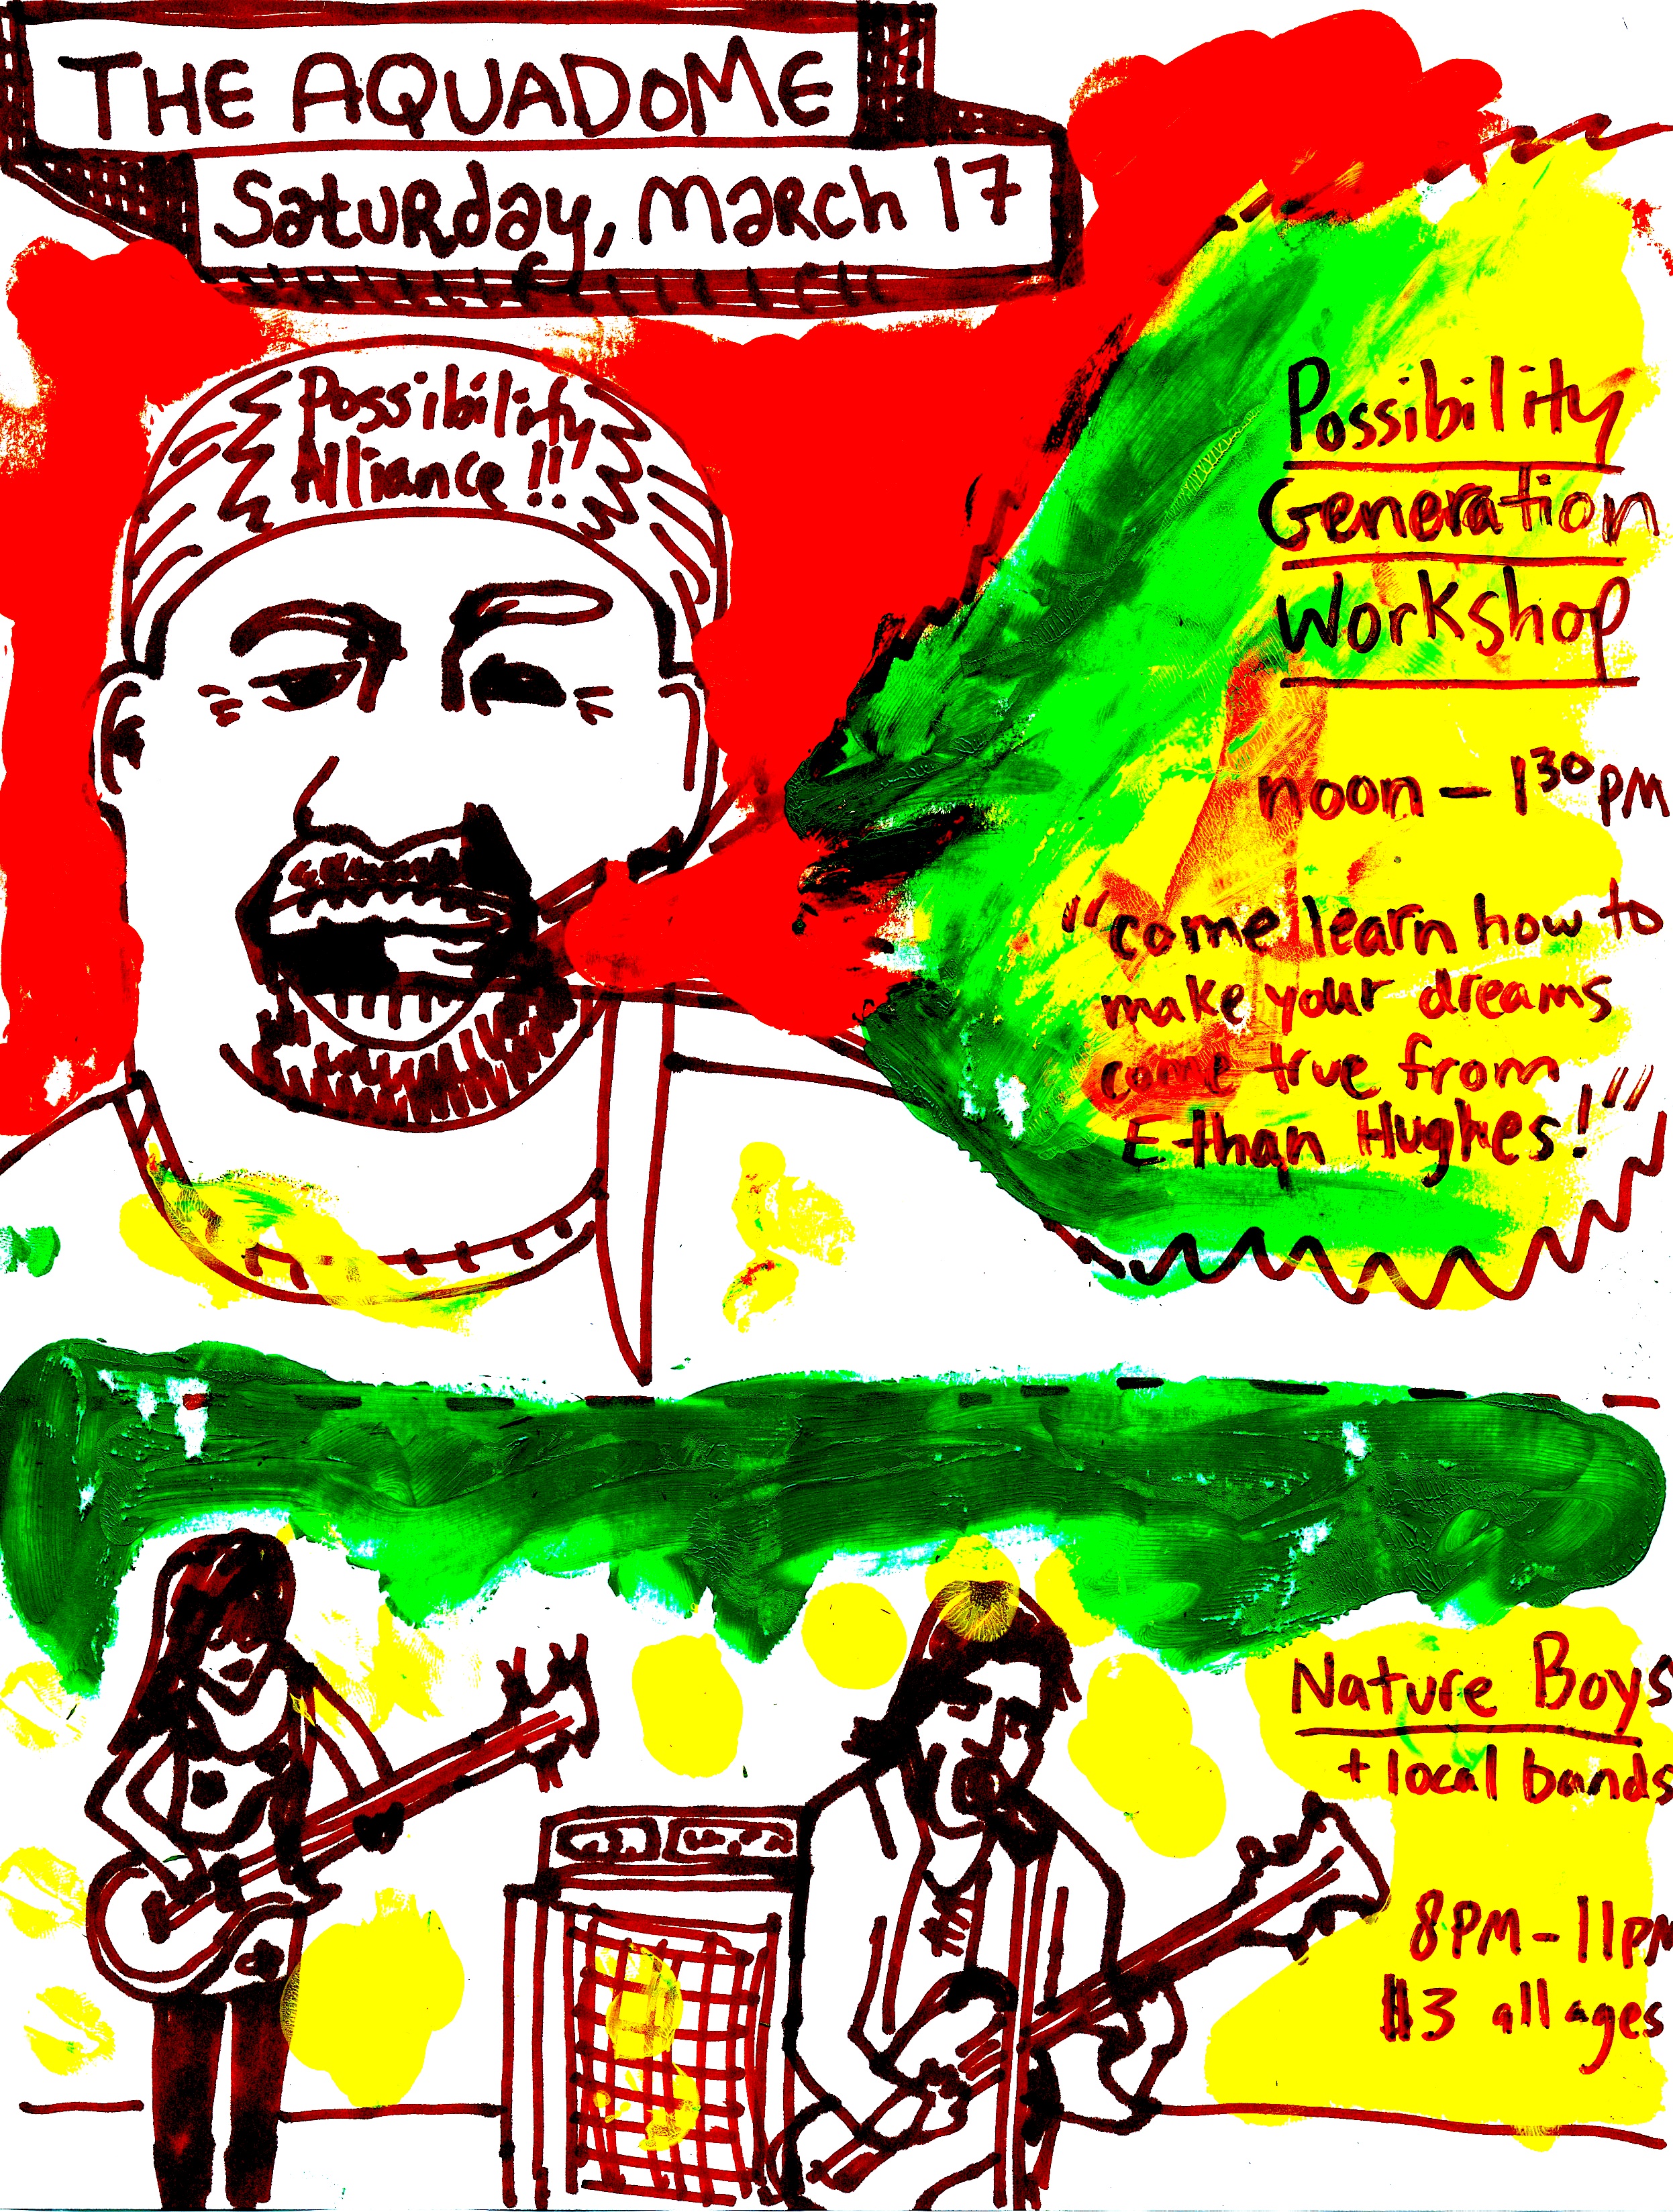 THE AQUADOME
Saturday, March 17
Possibility
Alliance!!
Possibility
Generation
Workshop
noon – 1³⁰ PM
"come learn how to
make your dreams
come true from
Ethan Hughes!"
Nature Boys
+ local bands
8PM – 11PM
$3 all ages